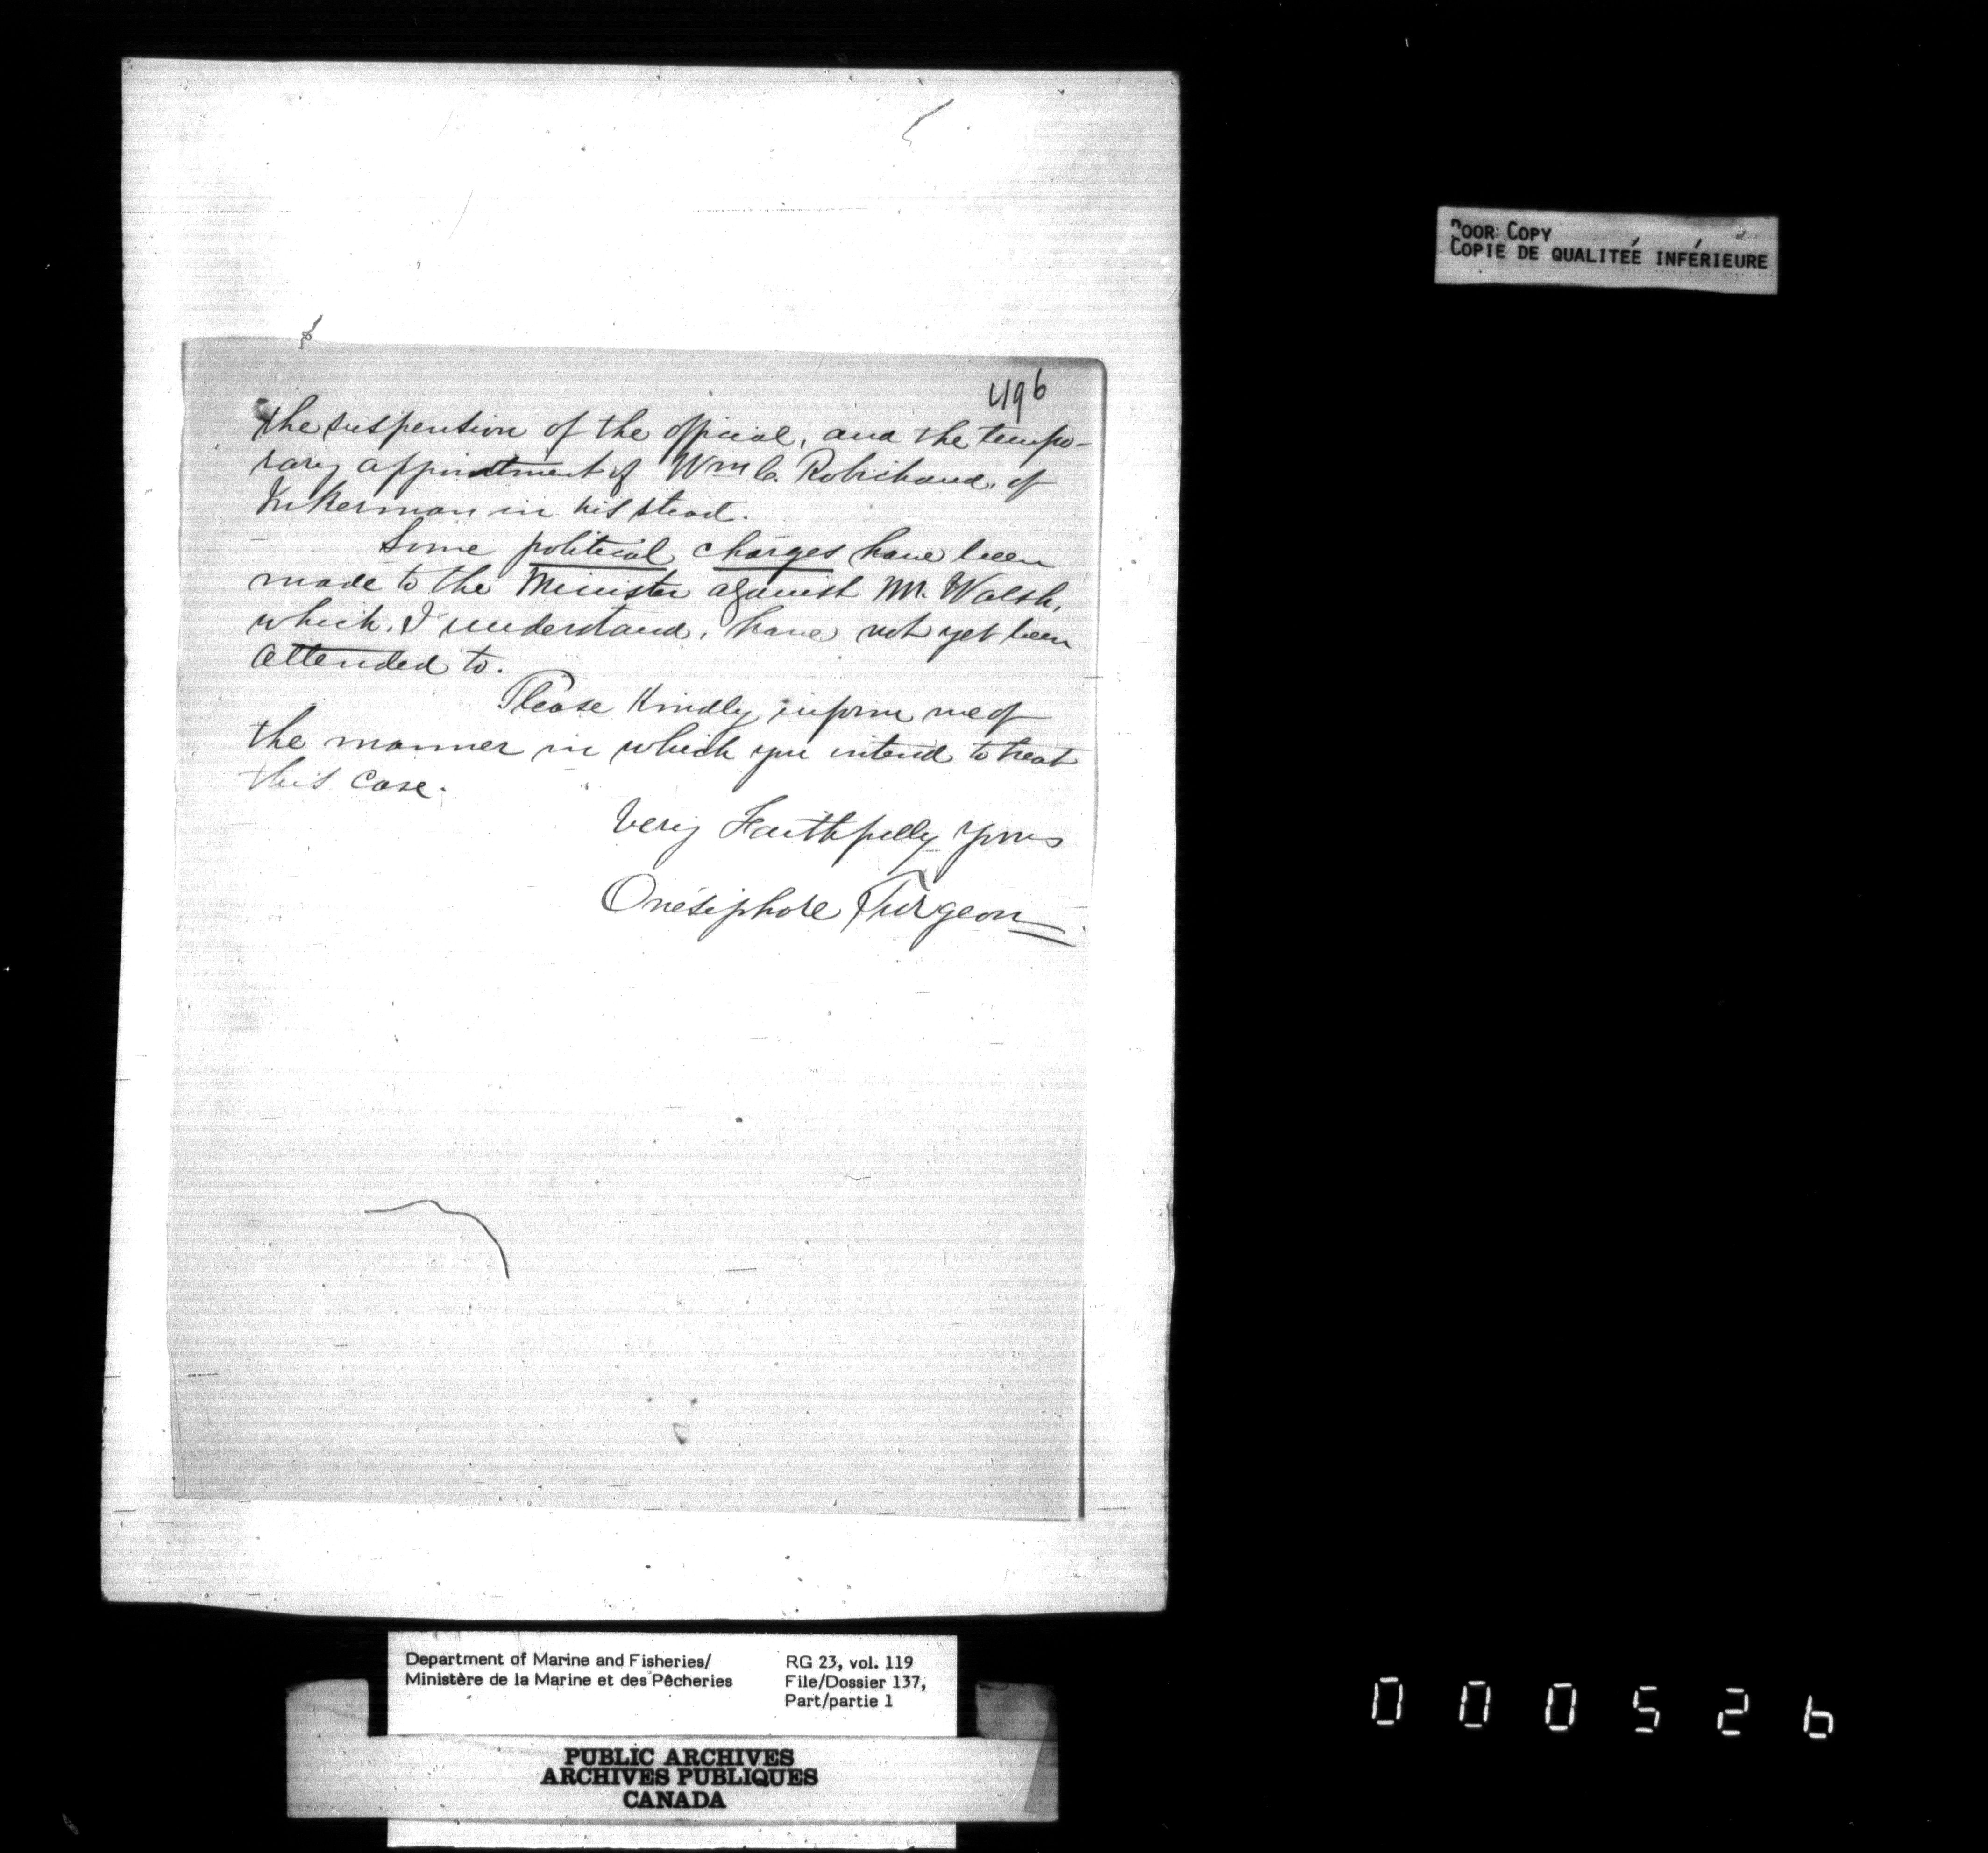 496
the suspention of the official, and the tempo-
rary appointment of Wm C. Robichaud, of
Inkerman in his stead.
Some political charges have been
made to the Minister against Mr. Walsh,
which, I understand, have not yet been
attended to.
Please Kindly inform me of
the manner in which you intend to treat
this case.
Very Faithfully Yours
Onésiphore Turgeon
POOR COPY
COPIE DE QUALITÉE INFÉRIEURE
Department of Marine and Fisheries/
Ministère de la Marine et des Pêcheries
RG 23, vol. 119
File/Dossier 137,
Part/partie 1
PUBLIC ARCHIVES
ARCHIVES PUBLIQUES
CANADA
000526